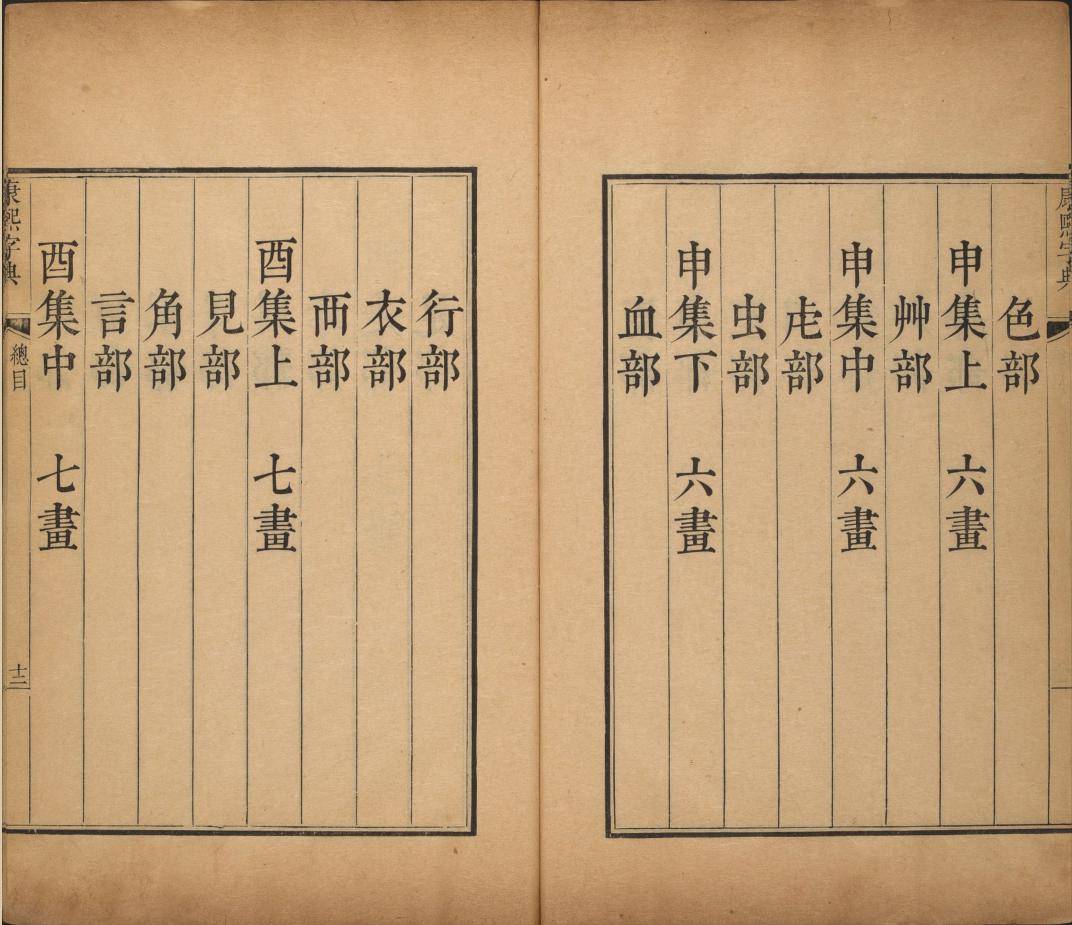 康熙字典
色部
申集上 六畫
艸部
申集中 六畫
虍部
虫部
申集下 六畫
血部
行部
衣部
襾部
酉集上 七畫
見部
角部
言部
酉集中 七畫
康熙字典 總目 十二